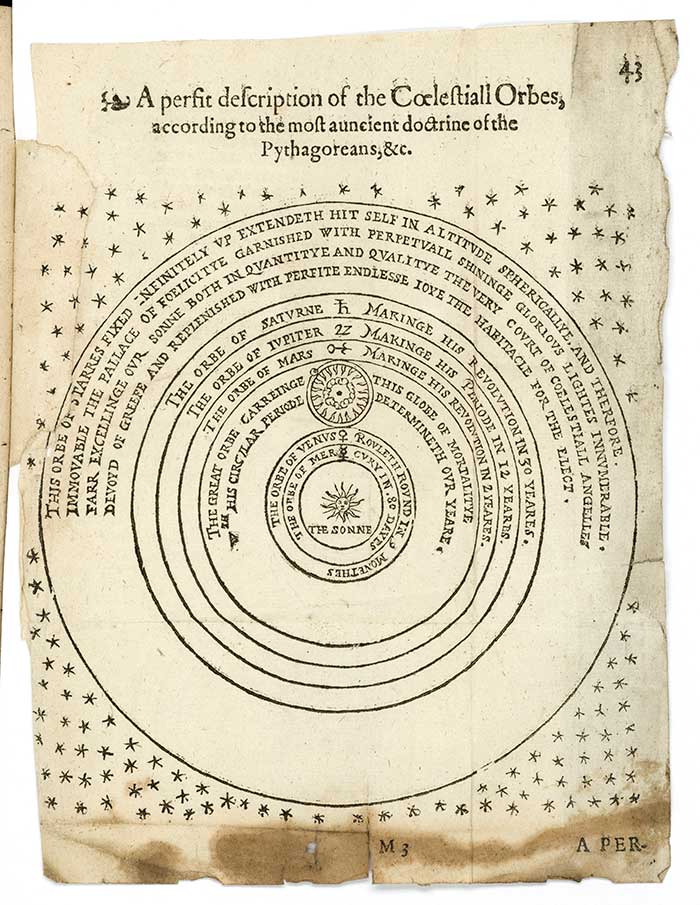 43
A perfit deſcription of the Cœleſtiall Orbes,
according to the moſt auncient doctrine of the
Pythagoreans, &c.
THIS ORBE OF STARRES FIXED INFINITELY VP EXTENDETH HIT SELF IN ALTITVDE SPHERICALLYE, AND THERFORE
IMMOVABLE THE PALLACE OF FOELICITYE GARNISHED WITH PERPETVALL SHININGE GLORIOVS LIGHTES INNVMERABLE.
FARR EXCELLINGE OVR SONNE BOTH IN QVANTITYE AND QVALITYE THE VERY COVRT OF COELESTIALL ANGELLES
DEVOYD OF GREEFE AND REPLENISHED WITH PERFITE ENDLESSE IOYE THE HABITACLE FOR THE ELECT.
THE ORBE OF SATVRNE ♄ MAKINGE HIS REVOLVTION IN 30 YEARES.
THE ORBE OF IVPITER ♃ MAKINGE HIS PERIODE IN 12 YEARES.
THE ORBE OF MARS ♂ MAKINGE HIS REVOLVTION IN 2 YEARES.
THE GREAT ORBE CARREINGE THIS GLOBE OF MORTALITYE
WTH HIS CIRCVLAR PERIODE DETERMINETH OVR YEARE.
THE ORBE OF VENVS ♀ ROVLETH ROVND IN 9 MONETHES
THE ORBE OF MERCVRY IN 80 DAYES
THE SONNE
M 3
A PER-